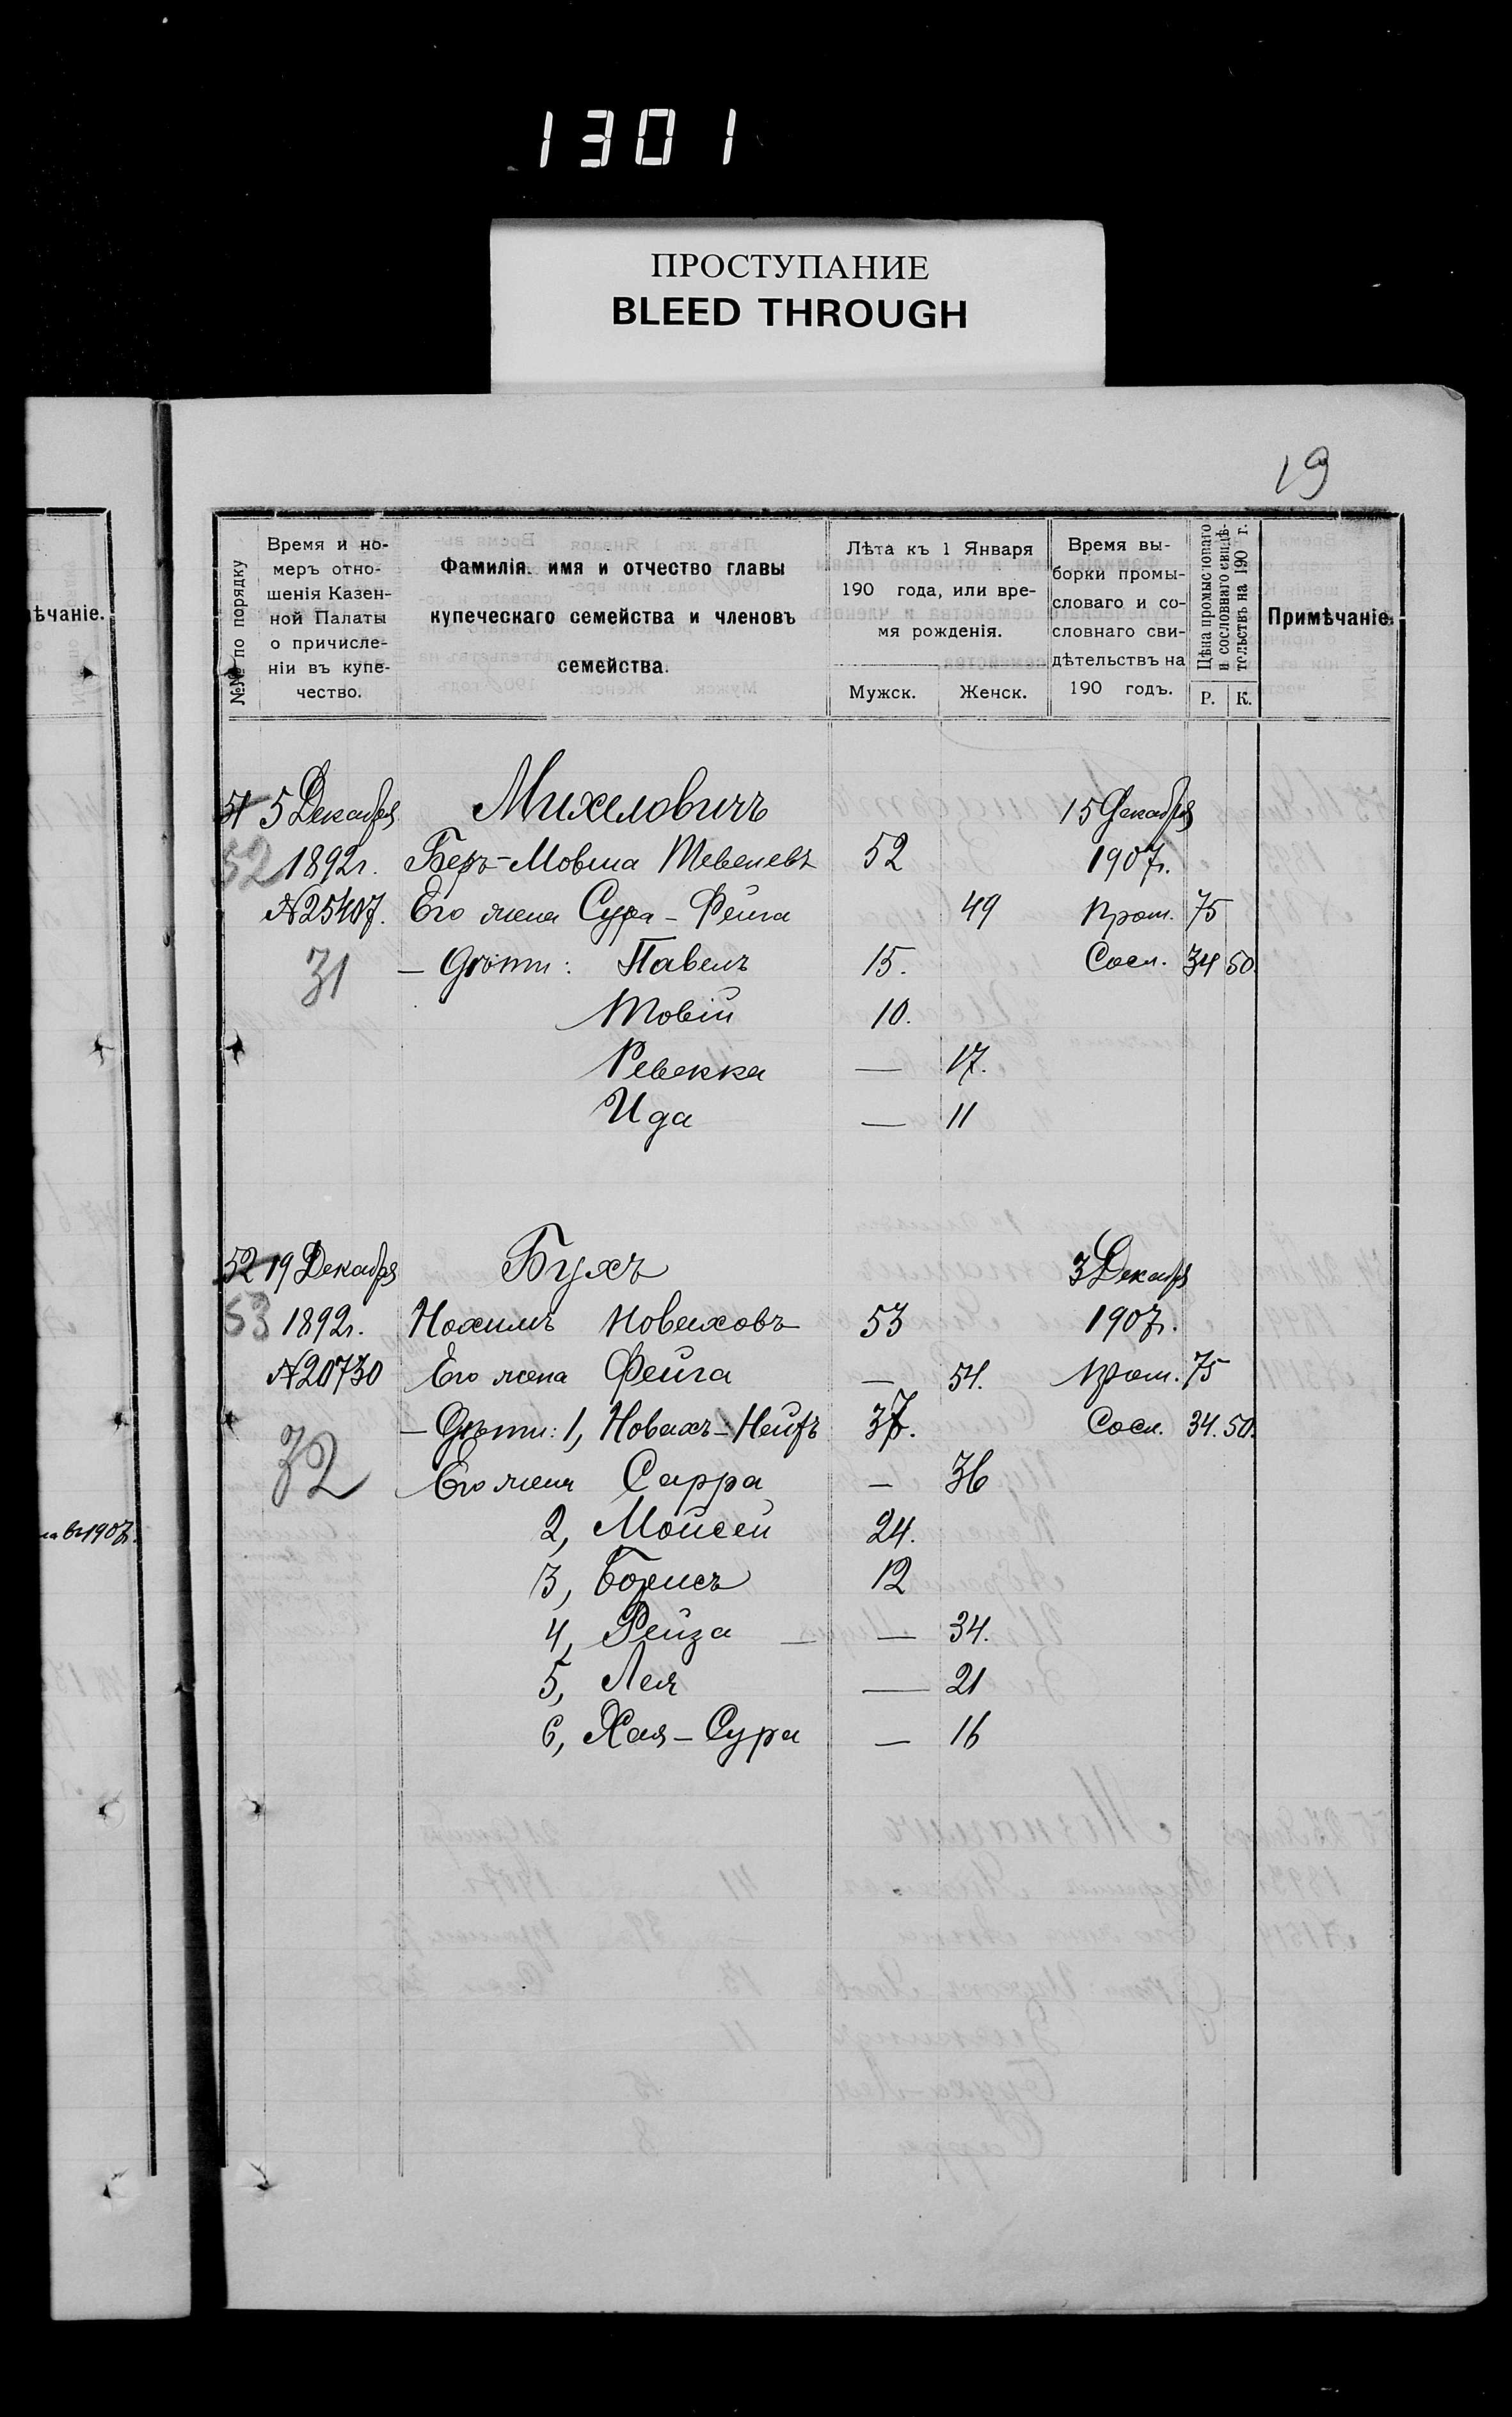 1301
ПРОСТУПАНИЕ
BLEED THROUGH
19
ѣчаніе.
№№ по порядку
Время и но-
меръ отно-
шенія Казен-
ной Палаты
о причисле-
ніи въ купе-
чество.
Фамилія. имя и отчество главы
купеческаго семейства и членовъ
семейства.
Лѣта къ 1 Января
190 года, или вре-
мя рожденія.
Мужск. Женск.
Время вы-
борки промы-
словаго и со-
словнаго сви-
дѣтельствъ на
190 годъ.
Цѣна промысловаго
и сословнаго свидѣ-
тельствъ на 190 г.
Р. К.
Примѣчаніе.
51 5 Декабря Михеловичъ 15 Декабря
52 1892г. Беръ-Мовша Тевелевъ 52 1907г.
№25407. Его жена Сура-Фейга 49 Пром. 75
31 — Дѣти: Павелъ 15. Сосл. 34 50.
Товій 10.
Ревекка — 17.
Ида — 11
52 19 Декабря Бухъ 3 Декабря
53 1892г. Нохимъ Новаховъ 53 1907г.
№20730 Его жена Фейга — 54. Пром. 75
— Дѣти: 1, Новахъ-Нейфъ 37. Сосл. 34. 50.
32 Его жена Сарра — 36
2, Мойсей 24.
3, Борисъ 12
4, Рейза — — 34.
5, Лея — 21
6, Хая-Сура — 16
на въ 1907г.